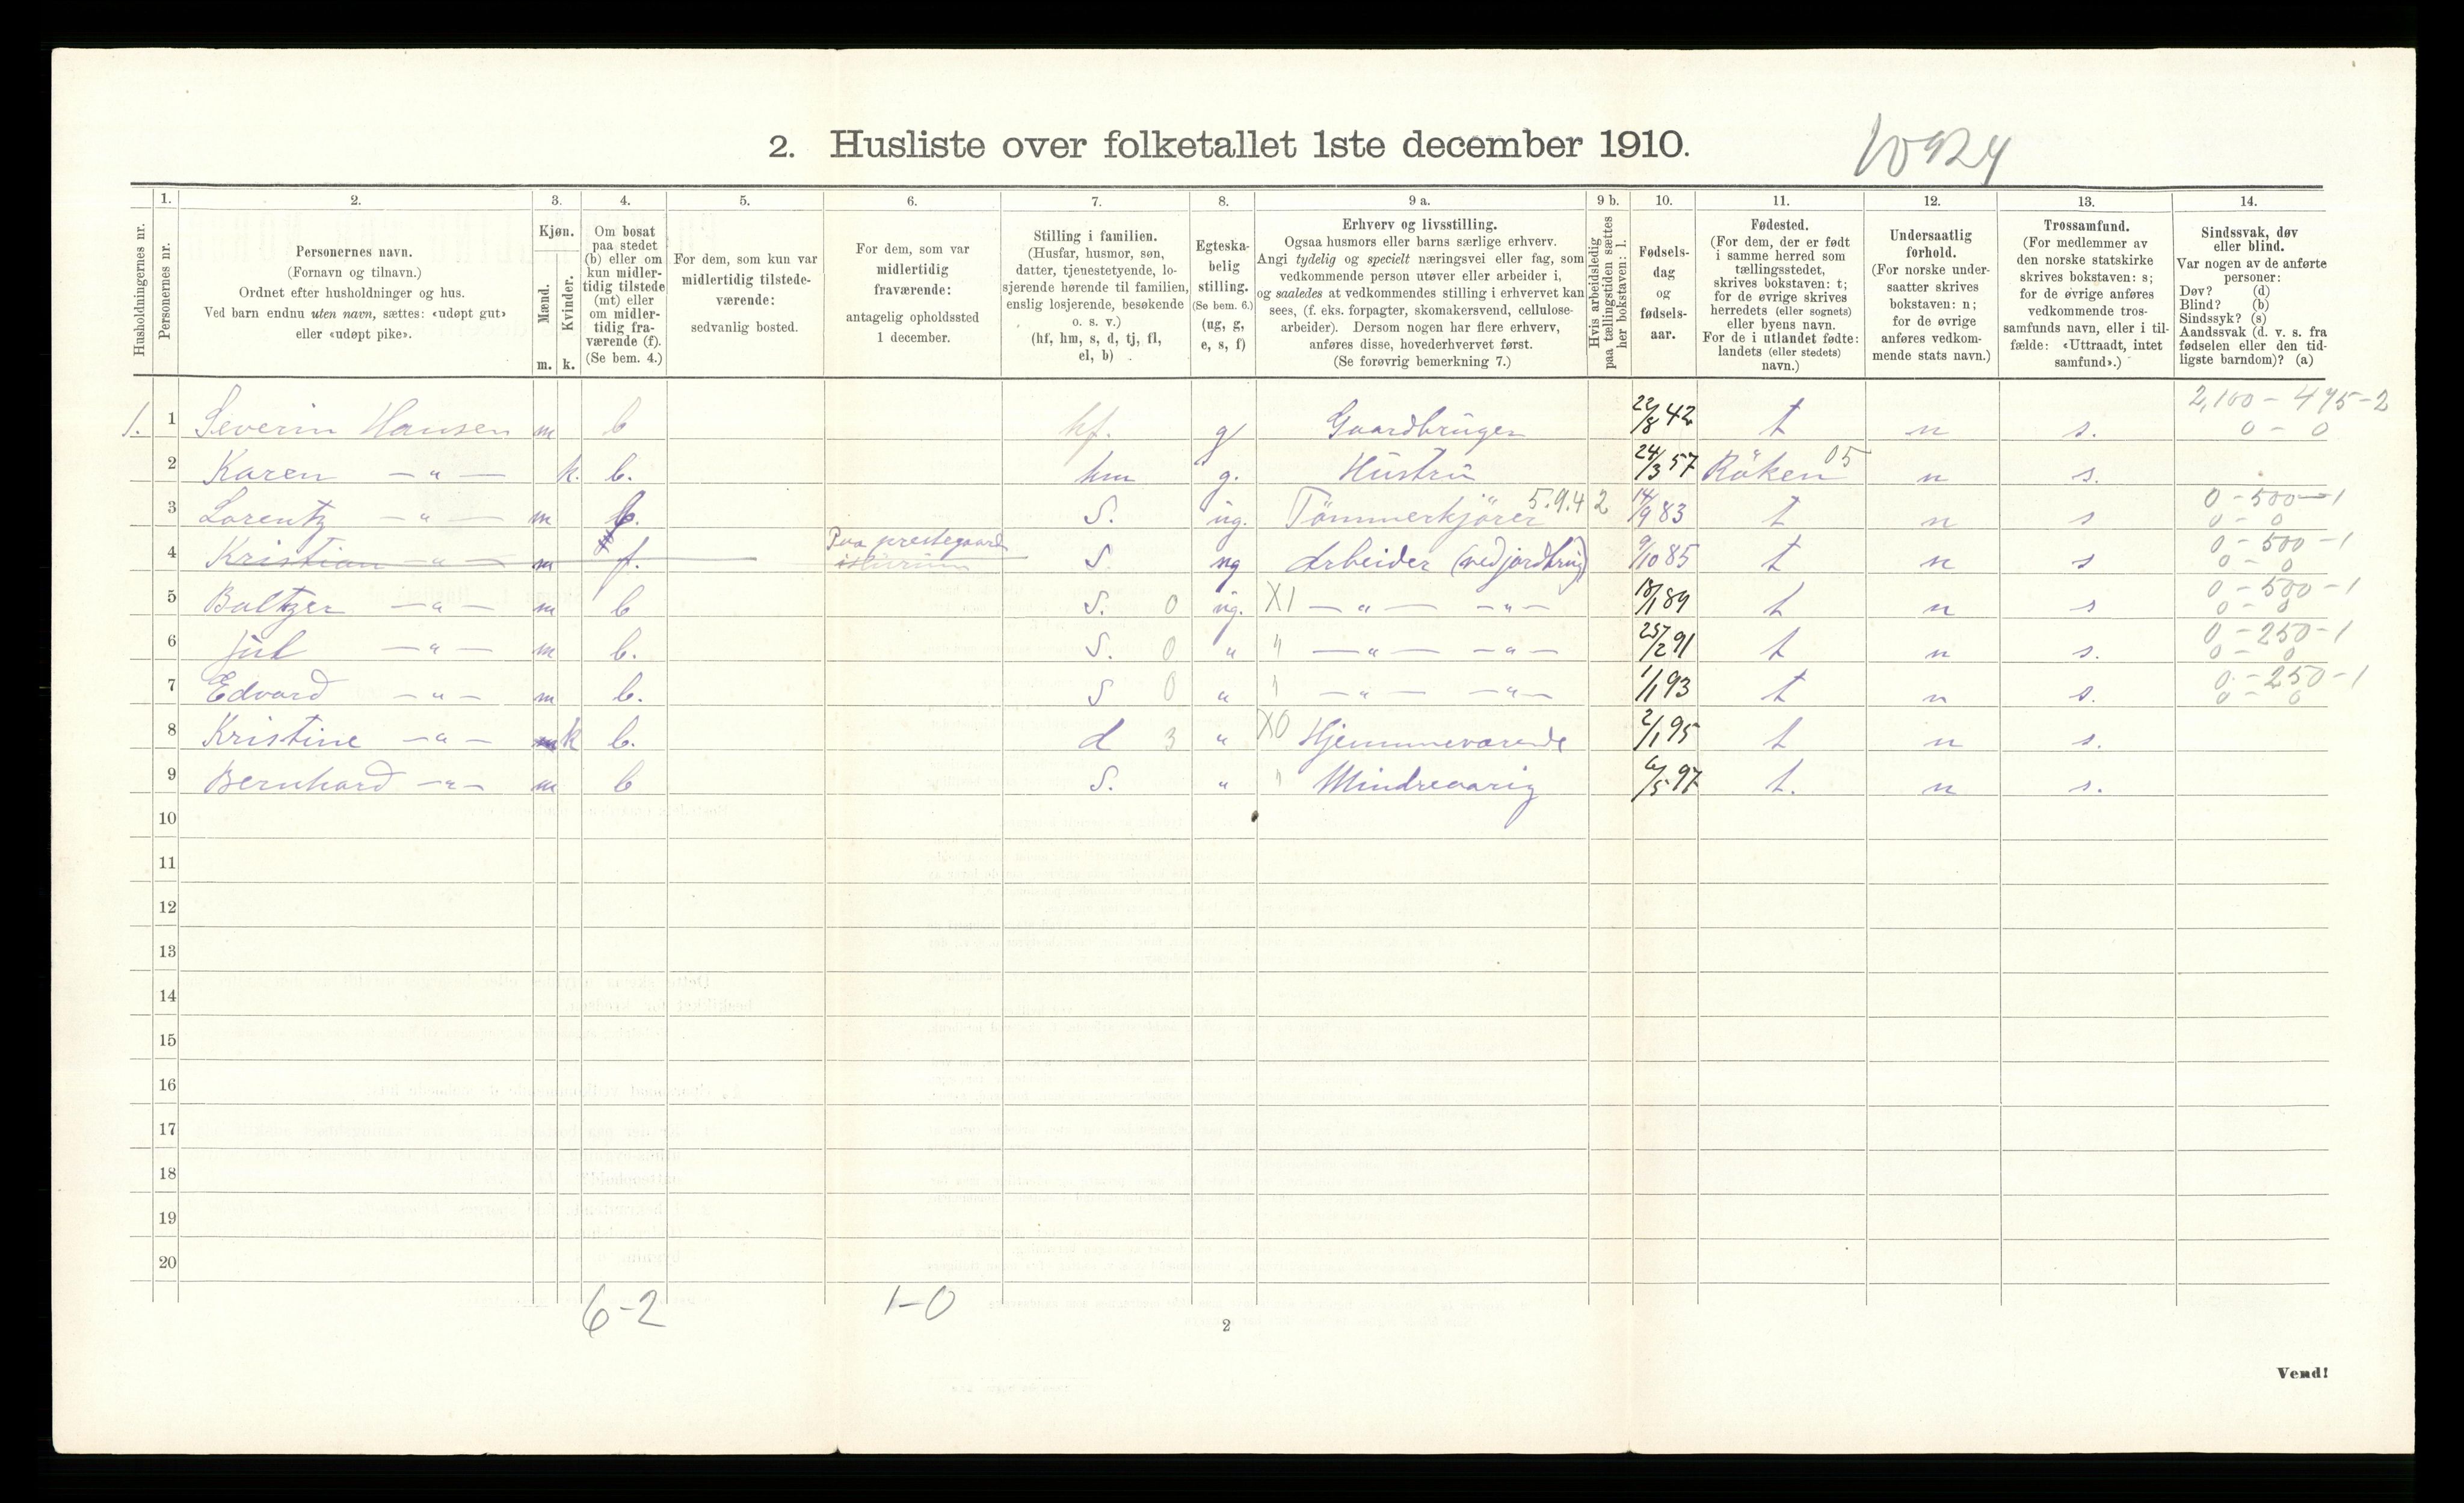 2. Husliste over folketallet 1ste december 1910.
10924
Husholdningernes nr.
1. Personernes nr.
2. Personernes navn.
(Fornavn og tilnavn.)
Ordnet efter husholdninger og hus.
Ved barn endnu uten navn, sættes: «udøpt gut»
eller «udøpt pike».
3. Kjøn.
Mænd. Kvinder.
m. k.
4. Om bosat
paa stedet
(b) eller om
kun midler-
tidig tilstede
(mt) eller
om midler-
tidig fra-
værende (f).
(Se bem. 4.)
5. For dem, som kun var
midlertidig tilstede-
værende:
sedvanlig bosted.
6. For dem, som var
midlertidig
fraværende:
antagelig opholdssted
1 december.
7. Stilling i familien.
(Husfar, husmor, søn,
datter, tjenestetyende, lo-
sjerende hørende til familien,
enslig losjerende, besøkende
o. s. v.)
(hf, hm, s, d, tj, fl,
el, b)
8. Egteska-
belig
stilling.
(Se bem. 6.)
(ug, g,
e, s, f)
9 a. Erhverv og livsstilling.
Ogsaa husmors eller barns særlige erhverv.
Angi tydelig og specielt næringsvei eller fag, som
vedkommende person utøver eller arbeider i,
og saaledes at vedkommendes stilling i erhvervet kan
sees, (f. eks. forpagter, skomakersvend, cellulose-
arbeider). Dersom nogen har flere erhverv,
anføres disse, hovederhvervet først.
(Se forøvrig bemerkning 7.)
9 b. Hvis arbeidsledig
paa tællingstiden sættes
her bokstaven: l.
10. Fødsels-
dag
og
fødsels-
aar.
11. Fødested.
(For dem, der er født
i samme herred som
tællingsstedet,
skrives bokstaven: t;
for de øvrige skrives
herredets (eller sognets)
eller byens navn.
For de i utlandet fødte:
landets (eller stedets)
navn.)
12. Undersaatlig
forhold.
(For norske under-
saatter skrives
bokstaven: n;
for de øvrige
anføres vedkom-
mende stats navn.)
13. Trossamfund.
(For medlemmer av
den norske statskirke
skrives bokstaven: s;
for de øvrige anføres
vedkommende tros-
samfunds navn, eller i til-
fælde: «Uttraadt, intet
samfund».)
14. Sindssvak, døv
eller blind.
Var nogen av de anførte
personer:
Døv? (d)
Blind? (b)
Sindssyk? (s)
Aandssvak (d. v. s. fra
fødselen eller den tid-
ligste barndom)? (a)
1. 1 Severin Hansen m b hf. g Gaardbruger 22/8 42 t n s. 2,100 - 475 - 2
0 - 0
2 Karen — " — k. b. hm g. Hustru 24/3 57 Röken 05 n s.
3 Lorentz — " — m b. S. ug. Tömmerkjörer 5.9.4 2 14/9 83 t n s 0 - 500 - 1
0 - 0
4 Kristian — " — m f. Paa prestegaard S. ug Arbeider (ved jordbrug) 9/10 85 t n s 0 - 500 - 1
0 - 0
5 Baltzer — " — m b S. 0 ug. X1 — " — — " — 18/1 89 t n s 0 - 500 - 1
0 - 0
6 Jul — " — m b. S. 0 " " — " — — " — 25/2 91 t n s. 0 - 250 - 1
0 - 0
7 Edvard — " — m b. S 0 " " — " — — " — 1/1 93 t n s. 0 - 250 - 1
0 - 0
8 Kristine — " — k b. d 3 " X0 Hjemmeværende 2/1 95 t n s.
9 Bernhard — " — m b S. " " Mindreaarig 6/5 97 t. n s.
10
11
12
13
14
15
16
17
18
19
20
6-2 1-0
2
Vend!